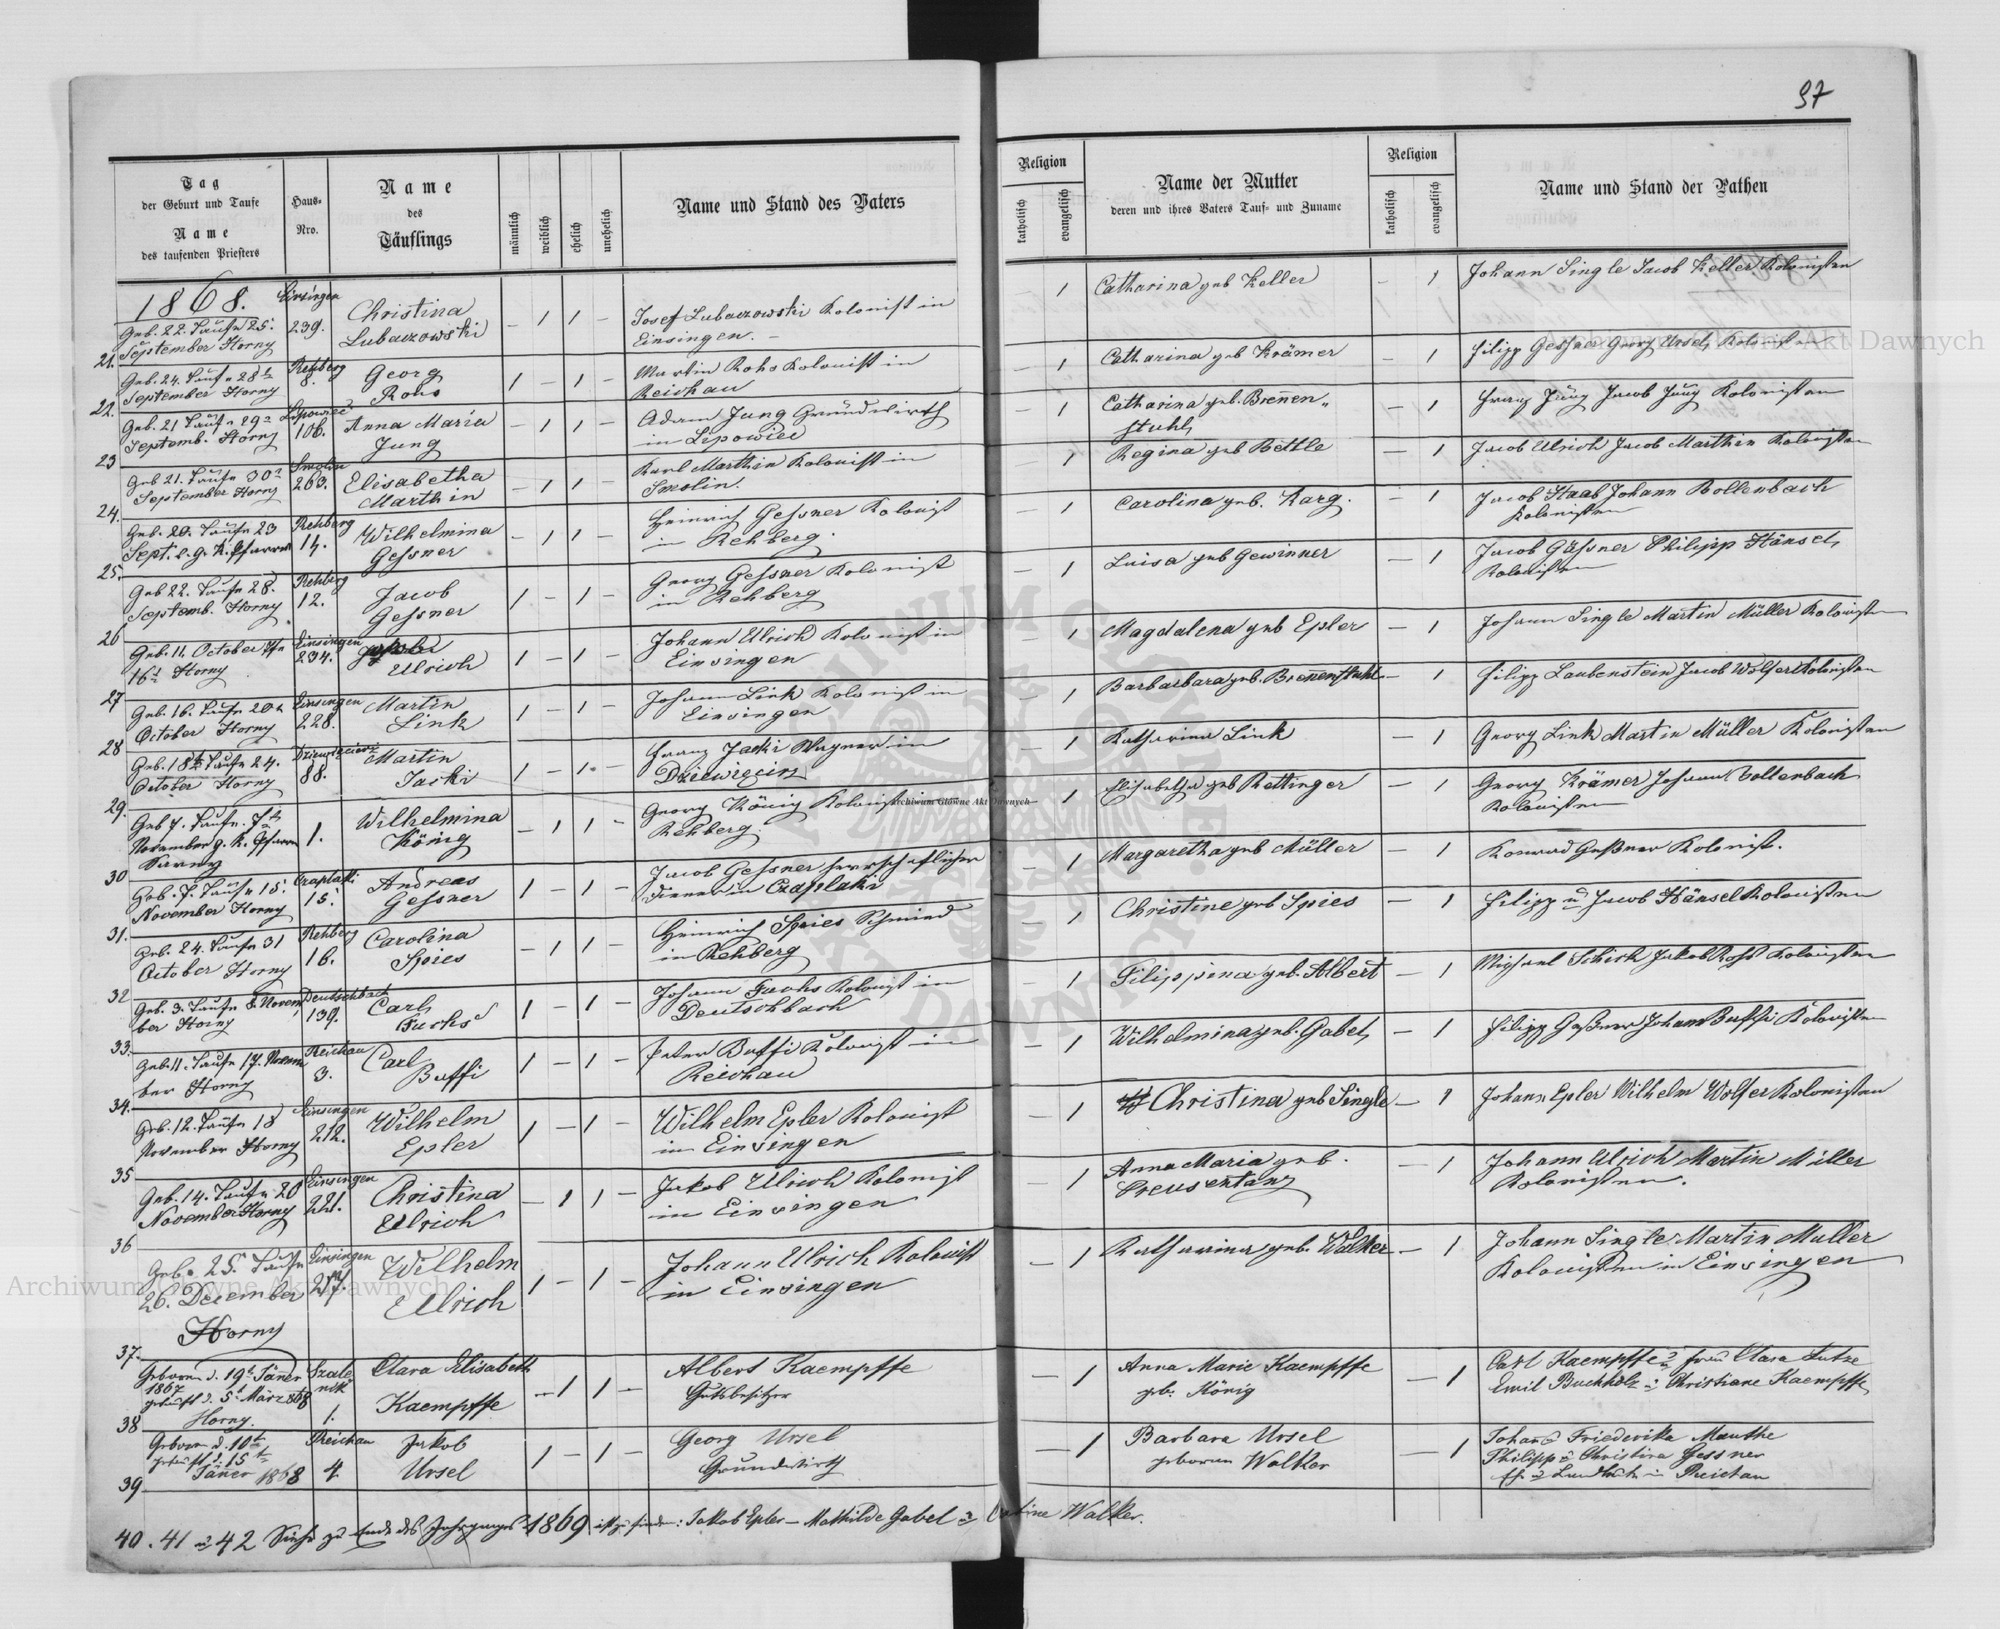 97
Tag
der Geburt und Taufe
Name
des taufenden Priesters
Haus-
Nro.
Name
des
Täuflings
männlich
weiblich
ehelich
unehelich
Name und Stand des Vaters
Religion
katholisch
evangelisch
Name der Mutter
deren und ihres Vaters Tauf- und Zuname
Religion
katholisch
evangelisch
Name und Stand der Pathen
1868.
21. Geb. 22. Taufe 25. September Horny
Einsingen 239.
Christina Lubaczowski
– 1 1 –
Josef Lubaczowski Kolonist in Einsingen. –
– 1
Catharina geb Keller
– 1
Johann Single Jacob Keller Kolonisten
22. Geb. 24. Taufe 28t September Horny
Rehberg 8.
Georg Rohs
1 – 1 –
Martin Rohs Kolonist in Reichau
– 1
Catharina geb Krämer
– 1
Filipp Gessner Georg Ursel
23 Geb. 21 Taufe 29a Septemb. Horny
Lipowiec 106.
Anna Maria Jung
– 1 1 –
Adam Jung Grundwirth in Lipowiec
– 1
Catharina geb. Brenen„ stuhl
– 1
Franz Jung Jacob Jung Kolonisten
24. Geb 21. Taufe 30a September Horny
Smolin 263.
Elisabetha Marthin
– 1 1 –
Karl Marthin Kolonist in Smolin.
1
Regina geb Bettle
– 1
Jacob Ulrich Jacob Marthin Kolonisten
25. Geb. 20. Taufe 23 Sept. e. g. k. Pfarrer
Rehberg 14.
Wilhelmina Gessner
– 1 1 –
Heinrich Gessner Kolonist in Rehberg.
– 1
Carolina geb. Karg.
– 1
Jacob Staab Johann Bollenbach Kolonisten
26 Geb 22. Taufe 28. Septemb. Horny
Rehberg 12.
Jacob Gessner
1 – 1 –
Georg Gessner Kolonist in Rehberg
– 1
Luisa geb Gewinner
– 1
Jacob Gässner Philipp Hänsel Kolonisten
27 Geb. 11. October 16t Horny
Einsingen 234.
Ulrich
1 – 1 –
Johann Ulrich Kolonist in Einsingen
1
Magdalena geb Epler
– 1
Johann Single Martin Müller Kolonisten
28 Geb. 16. Taufe 20a October Horny
Einsingen 228.
Martin Link
1 – 1 –
Johann Link Kolonist in Einsingen
1
Barbarbara geb. Brenenstuhl
– 1
Filipp Laubenstein Jacob Wolfer Kolonisten
29. Geb. 18t Taufe 24. October Horny
88.
Martin Jaski
1 – 1 –
Franz Jaski Wagner in
– 1
Katharina Link
– 1
Georg Link Martin Müller Kolonisten
30 Geb 7. Taufe 7t November g. k. Pfarrer
1.
Wilhelmina König
– 1 1 –
Georg König Kolonist in Rehberg.
– 1
Elisabetha geb Rettinger
– 1
Georg Krämer Johann Bollenbach Kolonisten
31. Geb. 7. Taufe 15. November Horny
Czaplaki 15.
Andreas Gessner
1 – 1 –
Jacob Gessner herrschaftlicher Diener in Czaplaki
– 1
Margaretha geb Müller
– 1
Konrad Geßner Kolonist.
32 Geb. 24. Taufe 31 October Horny
Rehberg 16.
Carolina Spies
– 1 1 –
Heinrich Spies Schmied in Rehberg
– 1
Christine geb Spies
– 1
Filipp u Jacob Hänsel Kolonisten
33. Geb. 3. Taufe 8. Novem ber Horny
Deutschbach 139.
Carl Fuchs
1 – 1 –
Johann Fuchs Kolonist in Deutschbach
– 1
Filippina geb. Albert
– 1
Michael Schick Jakob Rohs Kolonisten
34. Geb. 11. Taufe 17. Novem ber Horny
Reichau 3.
Carl Buffi
1 – 1 –
Peter Buffi Kolonist in Reichau
– 1
Wilhelmina geb. Gabel
– 1
Filipp Geßner Johann Buffi Kolonisten
35 Geb. 12. Taufe 18 November Horny
Einsingen 212.
Wilhelm Epler
1 – 1 –
Wilhelm Epler Kolonist in Einsingen
– 1
Christina geb Single
– 1
Johann Epler Wilhelm Wolfer Kolonisten
36 Geb. 14. Taufe 20 November Horny
Einsingen 221.
Christina Ulrich
– 1 1 –
Jakob Ulrich Kolonist in Einsingen
– 1
Anna Maria geb. Preusentanz
– 1
Johann Ulrich Martin Müller Kolonisten.
37. Geb. 25. Taufe 26. December Horny
Einsingen
Wilhelm Ulrich
1 – 1 –
Johann Ulrich Kolonist in Einsingen
– 1
Katharina geb. Walker
– 1
Johann Single Martin Muller Kolonisten in Einsingen
38 Geboren d. 19t Jäner 1867 getauft d. 5t März 868 Horny.
Szale nik 1.
Clara Elisabeth Kaempffe
– 1 1 –
Albert Kaempffe Gutsbesitzer
– 1
Anna Marie Kaempffe gb. König
– 1
Carl Kaempffe u Frau Clara Lutze
Emil Buchholz u Christiane Kaempffe
39 Geboren d. 10t getauft d. 15t Jäner 1868
Reichau 4
Jakob Ursel
1 – 1 –
Georg Ursel Grundwirth
– 1
Barbara Ursel geboren Walker
– 1
Johan u Friederika Manthe
Philipp u Christina Gessner
Reichau
40. 41 u 42 Siehe zu Ende des Jahrganges 1869 ist zu finden: Jakob Epler – Mathilde Gabel u Walker.
Archiwum Główne Akt Dawnych
Archiwum Główne Akt Dawnych
Archiwum Główne Akt Dawnych
ARCHIWUM GŁÓWNE AKT DAWNYCH